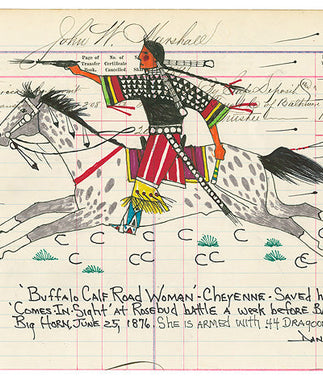 John W. Marshall
Page of Transfer Book.
No. of Certificate Cancelled.
Safe Deposit
of Baltimore
Trustee
"Buffalo Calf Road Woman"-Cheyenne-Saved h
'Comes-In-Sight' at Rosebud battle a week before B
Big Horn, June 25, 1876. She is armed with .44 Dragoo